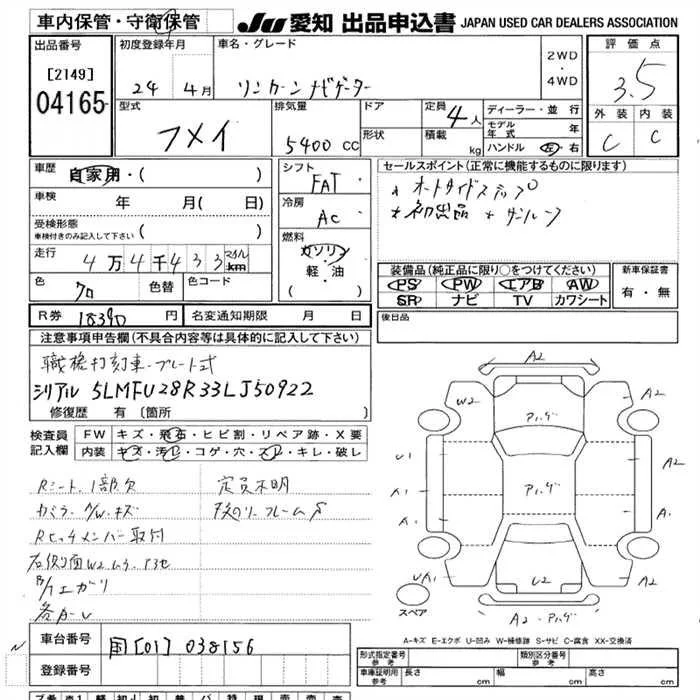 車内保管・守衛保管 JU 愛知 出品申込書 JAPAN USED CAR DEALERS ASSOCIATION
出品番号 初度登録年月 車名・グレード 2WD ・ 4WD 評価点
[2149] 04165 24 4月 リンカーンナビゲーター 3.5
型式 排気量 ドア 定員 4人 ディーラー・並行 外装 内装
フメイ 5400cc 形状 積載 kg モデル年式 年 C C
ハンドル 左・右
車歴 自家用・( ) シフト FAT セールスポイント(正常に機能するものに限ります)
車検 年 月( 日) 冷房 AC オートサイドステップ
受検形態 車検付きのみ記入して下さい ( ) 初出品 サンルーフ
走行 4万4千433 マイル km 燃料 ガソリン・軽・油 ( )
色 クロ 色替 色コード 装備品(純正品に限り○をつけてください) 新車保証書
PS PW エアB AW 有・無
SR ナビ TV カワシート
R券 18390円 名変通知期限 月 日 後日品
注意事項申告欄(不具合箇所等は具体的に記入して下さい)
職権打刻車・プレート式
シリアル 5LMFU28R33LJ50922
修復歴 有 〔箇所 〕
検査員記入欄 FW キズ・飛石・ヒビ割・リペア跡・X要
内装 キズ・汚レ・コゲ・穴・スレ・キレ・破レ
Rシート、1部欠 定員不明
Rヒッチメンバー取付
右側面W2ムラ
各カ
A2
W2 アハゲ A2
U1 A2
A1 アハゲ A1
UA1 U2 A2
スペア A2・アハゲ
A-キズ E-エクボ U-凹み W-補修跡 S-サビ C-腐食 XX-交換済
車台番号 国[01]038156
登録番号
形式指定番号 参考 類別区分番号 参考
車庫証明用 参考 長さ cm 幅 cm 高さ cm